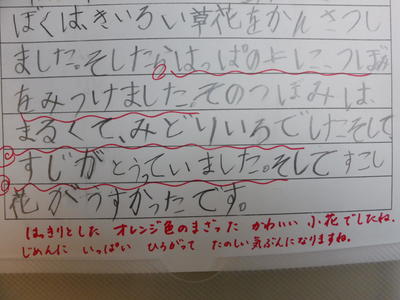 ぼくは、きいろい草花をかんさつし
ました。そしたらはっぱの上に、つぼみ
をみつけました。そのつぼみは、
まるくて、みどりいろでしたそして
すじがとうっていました。そしてすこし
花がうすかったです。
はっきりとした オレンジ色のまざった かわいい 小花でしたね。
じめんに いっぱい ひろがって たのしい気ぶんになりますね。